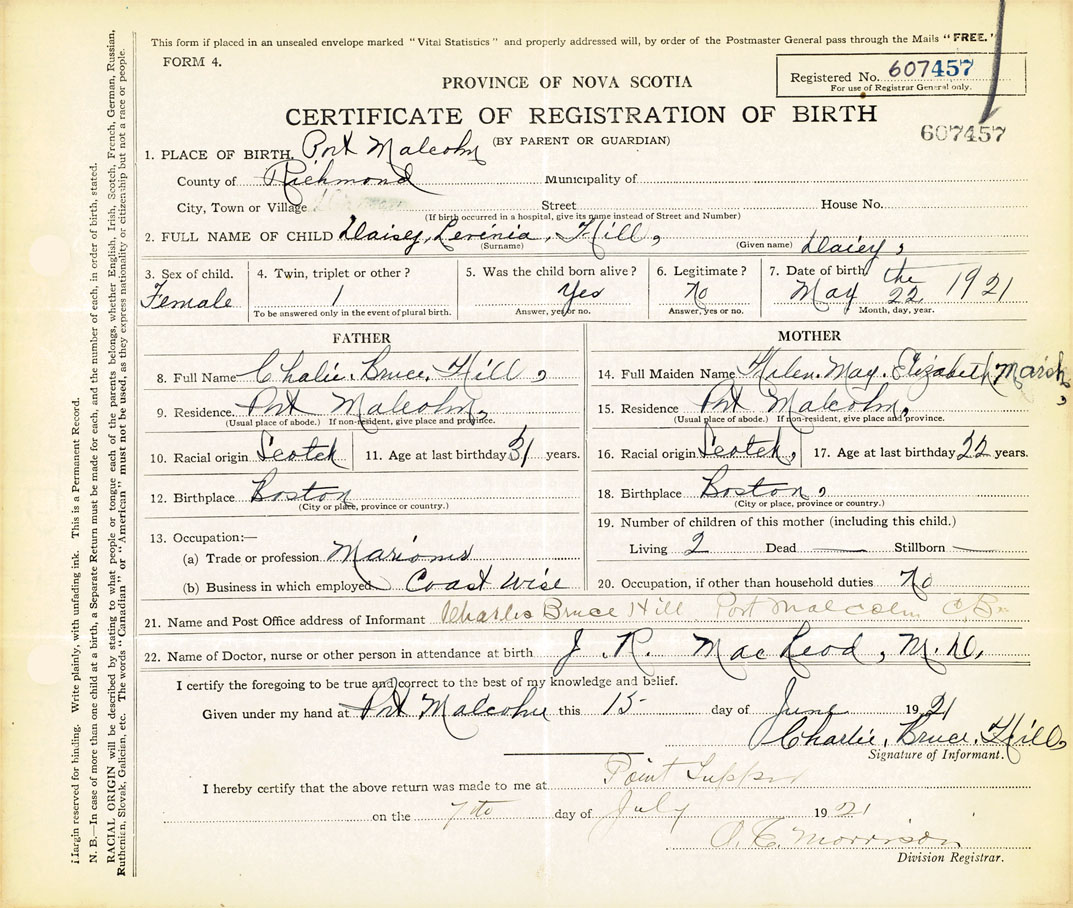 This form if placed in an unsealed envelope marked "Vital Statistics" and properly addressed will, by order of the Postmaster General pass through the Mails "FREE."
FORM 4.
Registered No. 607457
For use of Registrar General only.
PROVINCE OF NOVA SCOTIA
CERTIFICATE OF REGISTRATION OF BIRTH
607457
(BY PARENT OR GUARDIAN)
1. PLACE OF BIRTH, Port Malcolm
County of Richmond Municipality of
City, Town or Village Street House No.
(If birth occurred in a hospital, give its name instead of Street and Number)
2. FULL NAME OF CHILD Daisey, Levinia, Hill,
(Surname) (Given name) Daicy,
3. Sex of child. 4. Twin, triplet or other? 5. Was the child born alive? 6. Legitimate? 7. Date of birth the
Female 1 Yes No May 22 1921
To be answered only in the event of plural birth. Answer, yes or no. Answer, yes or no. Month, day, year.
FATHER
8. Full Name Chalie. Bruce. Hill,
9. Residence. Port Malcolm,
(Usual place of abode.) If non-resident, give place and province.
10. Racial origin Scotch 11. Age at last birthday 31 years.
12. Birthplace Boston
(City or place, province or country.)
13. Occupation:—
(a) Trade or profession
(b) Business in which employed Coast Wise
MOTHER
14. Full Maiden Name Helen. May. Elizabeth, March,
15. Residence Port Malcolm,
(Usual place of abode.) If non-resident, give place and province.
16. Racial origin Scotch, 17. Age at last birthday 22 years.
18. Birthplace Boston,
(City or place, province or country.)
19. Number of children of this mother (including this child.)
Living 2 Dead — Stillborn —
20. Occupation, if other than household duties No
21. Name and Post Office address of Informant Charles Bruce Hill Port Malcolm
22. Name of Doctor, nurse or other person in attendance at birth J. R. MacLeod, M.D.
I certify the foregoing to be true and correct to the best of my knowledge and belief.
Given under my hand at Port Malcolm this 15 day of June 1921
Charlie, Bruce, Hill,
Signature of Informant.
I hereby certify that the above return was made to me at Point Tupper
on the 7th day of July 1921
Morrison
Division Registrar.
Margin reserved for binding. Write plainly, with unfading ink. This is a Permanent Record.
N. B.—In case of more than one child at a birth, a Separate Return must be made for each, and the number of each, in order of birth, stated.
RACIAL ORIGIN will be described by stating to what people or tongue each of the parents belongs, whether English, Irish, Scotch, French, German, Russian,
Ruthenian, Slovak, Galician, etc. The words "Canadian" or "American" must not be used, as they express nationality or citizenship but not a race or people.